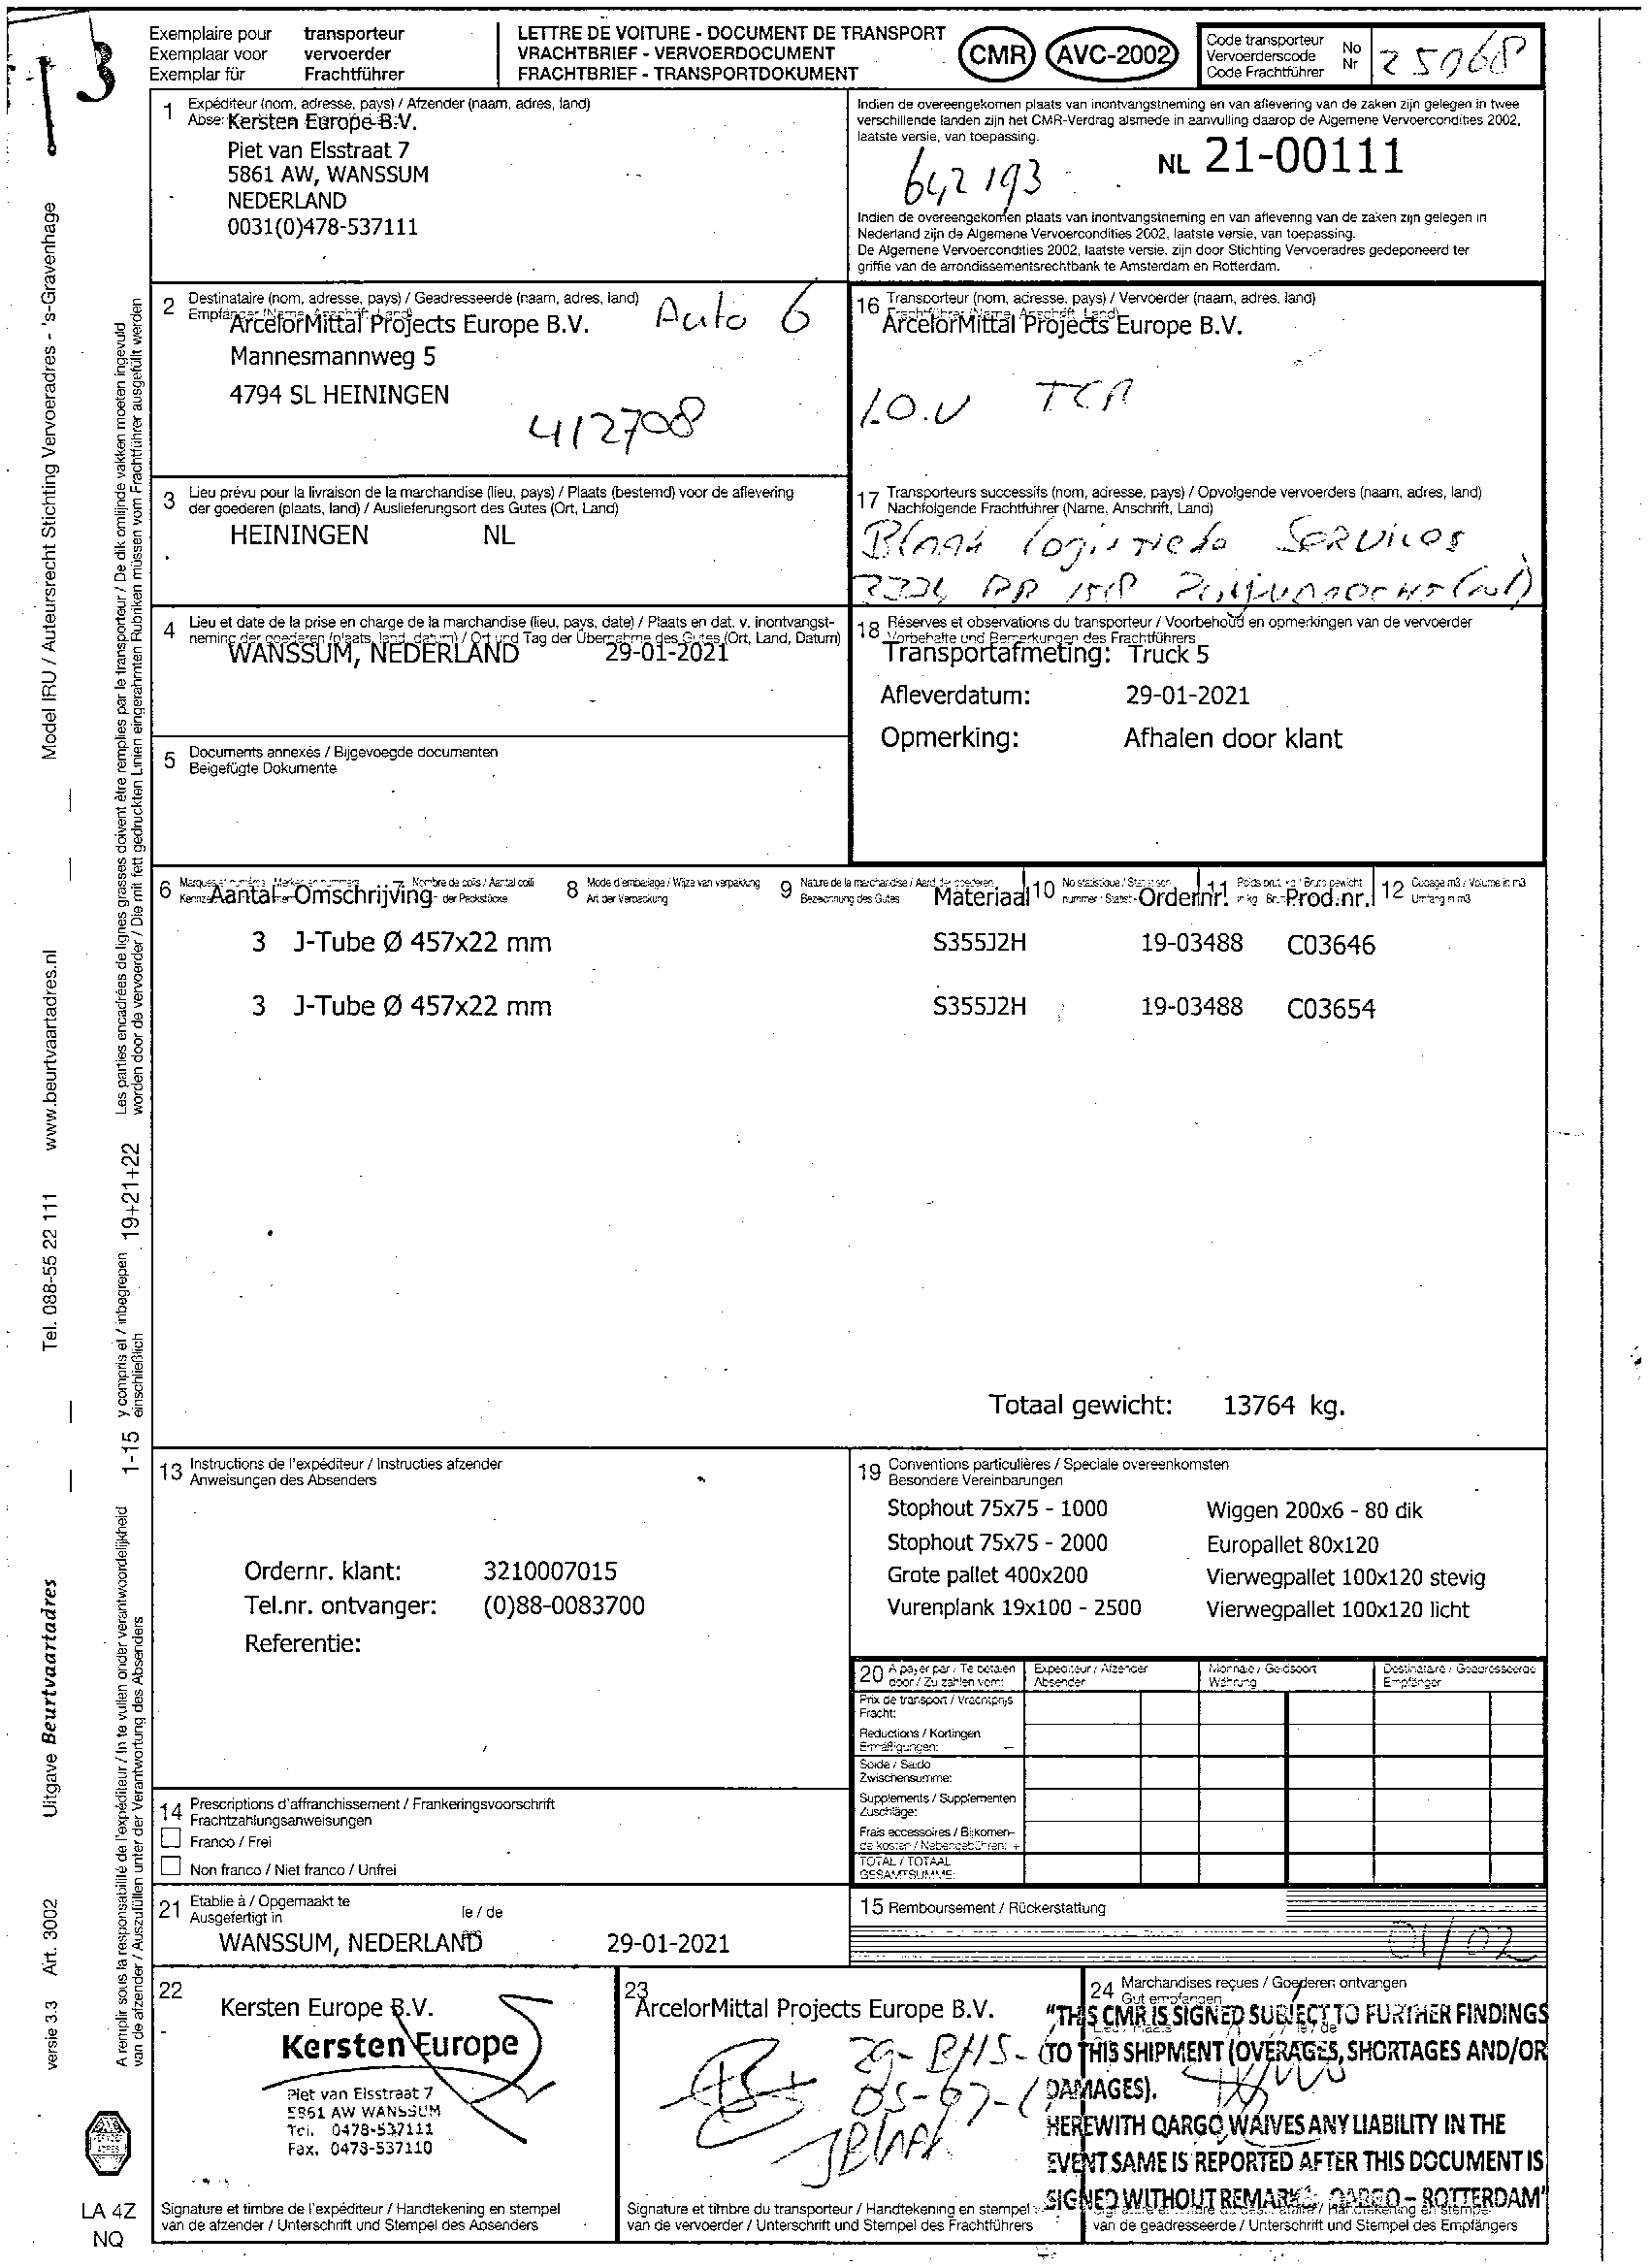 3
Exemplaire pour transporteur
Exemplaar voor vervoerder
Exemplar für Frachtführer
LETTRE DE VOITURE - DOCUMENT DE TRANSPORT
VRACHTBRIEF - VERVOERDOCUMENT
FRACHTBRIEF - TRANSPORTDOKUMENT
CMR AVC-2002
Code transporteur
Vervoerderscode
Code Frachtführer
No
Nr
25068
1 Expéditeur (nom, adresse, pays) / Afzender (naam, adres, land)
Kersten Europe B.V.
Piet van Elsstraat 7
5861 AW, WANSSUM
NEDERLAND
0031(0)478-537111
Indien de overeengekomen plaats van inontvangstneming en van aflevering van de zaken zijn gelegen in twee
verschillende landen zijn het CMR-Verdrag alsmede in aanvulling daarop de Algemene Vervoercondities 2002,
laatste versie, van toepassing.
642193
NL 21-00111
Indien de overeengekomen plaats van inontvangstneming en van aflevering van de zaken zijn gelegen in
Nederland zijn de Algemene Vervoercondities 2002, laatste versie, van toepassing.
De Algemene Vervoercondities 2002, laatste versie, zijn door Stichting Vervoeradres gedeponeerd ter
griffie van de arrondissementsrechtbank te Amsterdam en Rotterdam.
2 Destinataire (nom, adresse, pays) / Geadresseerde (naam, adres, land)
ArcelorMittal Projects Europe B.V.
Mannesmannweg 5
4794 SL HEININGEN
Auto 6
412708
16 Transporteur (nom, adresse, pays) / Vervoerder (naam, adres, land)
ArcelorMittal Projects Europe B.V.
I.O.V TCR
3 Lieu prévu pour la livraison de la marchandise (lieu, pays) / Plaats (bestemd) voor de aflevering
der goederen (plaats, land) / Auslieferungsort des Gutes (Ort, Land)
HEININGEN NL
17 Transporteurs successifs (nom, adresse, pays) / Opvolgende vervoerders (naam, adres, land)
Nachfolgende Frachtführer (Name, Anschrift, Land)
Services
4 Lieu et date de la prise en charge de la marchandise (lieu, pays, date) / Plaats en dat. v. inontvangst-
neming der goederen (plaats, land, datum) / Ort und Tag der Übernahme des Gutes (Ort, Land, Datum)
WANSSUM, NEDERLAND 29-01-2021
18 Réserves et observations du transporteur / Voorbehoud en opmerkingen van de vervoerder
Vorbehalte und Bemerkungen des Frachtführers
Transportafmeting: Truck 5
Afleverdatum: 29-01-2021
Opmerking: Afhalen door klant
5 Documents annexés / Bijgevoegde documenten
Beigefügte Dokumente
6 Aantal Omschrijving 7 Nombre de colis / Aantal colli
der Packstücke
8 Mode d'emballage / Wijze van verpakking
Art der Verpackung
9 Nature de la marchandise / Aard der goederen
Bezeichnung des Gutes
Materiaal 10 Ordernr. 11 Prod.nr. 12 Cubage m3 / Volume in m3
Umfang in m3
3 J-Tube Ø 457x22 mm S355J2H 19-03488 C03646
3 J-Tube Ø 457x22 mm S355J2H 19-03488 C03654
Totaal gewicht: 13764 kg.
13 Instructions de l'expéditeur / Instructies afzender
Anweisungen des Absenders
Ordernr. klant: 3210007015
Tel.nr. ontvanger: (0)88-0083700
Referentie:
19 Conventions particulières / Speciale overeenkomsten
Besondere Vereinbarungen
Stophout 75x75 - 1000 Wiggen 200x6 - 80 dik
Stophout 75x75 - 2000 Europallet 80x120
Grote pallet 400x200 Vierwegpallet 100x120 stevig
Vurenplank 19x100 - 2500 Vierwegpallet 100x120 licht
20 A payer par / Te betalen
door / Zu zahlen vom:
Expediteur / Afzender
Absender
Monnaie / Geldsoort
Währung
Destinataire / Geadresseerde
Empfänger
Prix de transport / Vrachtprijs
Fracht:
Reductions / Kortingen
Ermäßigungen: –
Solde / Saldo
Zwischensumme:
Supplements / Supplementen
Zuschläge:
Frais accessoires / Bijkomen-
de kosten / Nebengebühren: +
TOTAL / TOTAAL
GESAMTSUMME:
14 Prescriptions d'affranchissement / Frankeringsvoorschrift
Frachtzahlungsanweisungen
Franco / Frei
Non franco / Niet franco / Unfrei
21 Etablie à / Opgemaakt te
Ausgefertigt in
le / de
WANSSUM, NEDERLAND 29-01-2021
15 Remboursement / Rückerstattung
01/02
22
Kersten Europe B.V.
Kersten Europe
Piet van Elsstraat 7
5861 AW WANSSUM
Tel. 0478-537111
Fax. 0478-537110
Signature et timbre de l'expéditeur / Handtekening en stempel
van de afzender / Unterschrift und Stempel des Absenders
23
ArcelorMittal Projects Europe B.V.
29-BHS-
Signature et timbre du transporteur / Handtekening en stempel
van de vervoerder / Unterschrift und Stempel des Frachtführers
24 Marchandises reçues / Goederen ontvangen
Gut empfangen
"THIS CMR IS SIGNED SUBJECT TO FURTHER FINDINGS
TO THIS SHIPMENT (OVERAGES, SHORTAGES AND/OR
DAMAGES).
HEREWITH QARGO WAIVES ANY LIABILITY IN THE
EVENT SAME IS REPORTED AFTER THIS DOCUMENT IS
SIGNED WITHOUT REMARKS. QARGO - ROTTERDAM"
van de geadresseerde / Unterschrift und Stempel des Empfängers
Model IRU / Auteursrecht Stichting Vervoeradres - 's-Gravenhage
www.beurtvaartadres.nl
Tel. 088-55 22 111
Uitgave Beurtvaartadres
Art. 3002
versie 3.3
Les parties encadrées de lignes grasses doivent être remplies par le transporteur / De dik omlijnde vakken moeten ingevuld
worden door de vervoerder / Die mit fett gedruckten Linien eingerahmten Rubriken müssen vom Frachtführer ausgefüllt werden
1-15 y compris et / inbegrepen 19+21+22
einschließlich
A remplir sous la responsabilité de l'expéditeur / In te vullen onder verantwoordelijkheid
van de afzender / Auszufüllen unter der Verantwortung des Absenders
LA 4Z
NQ